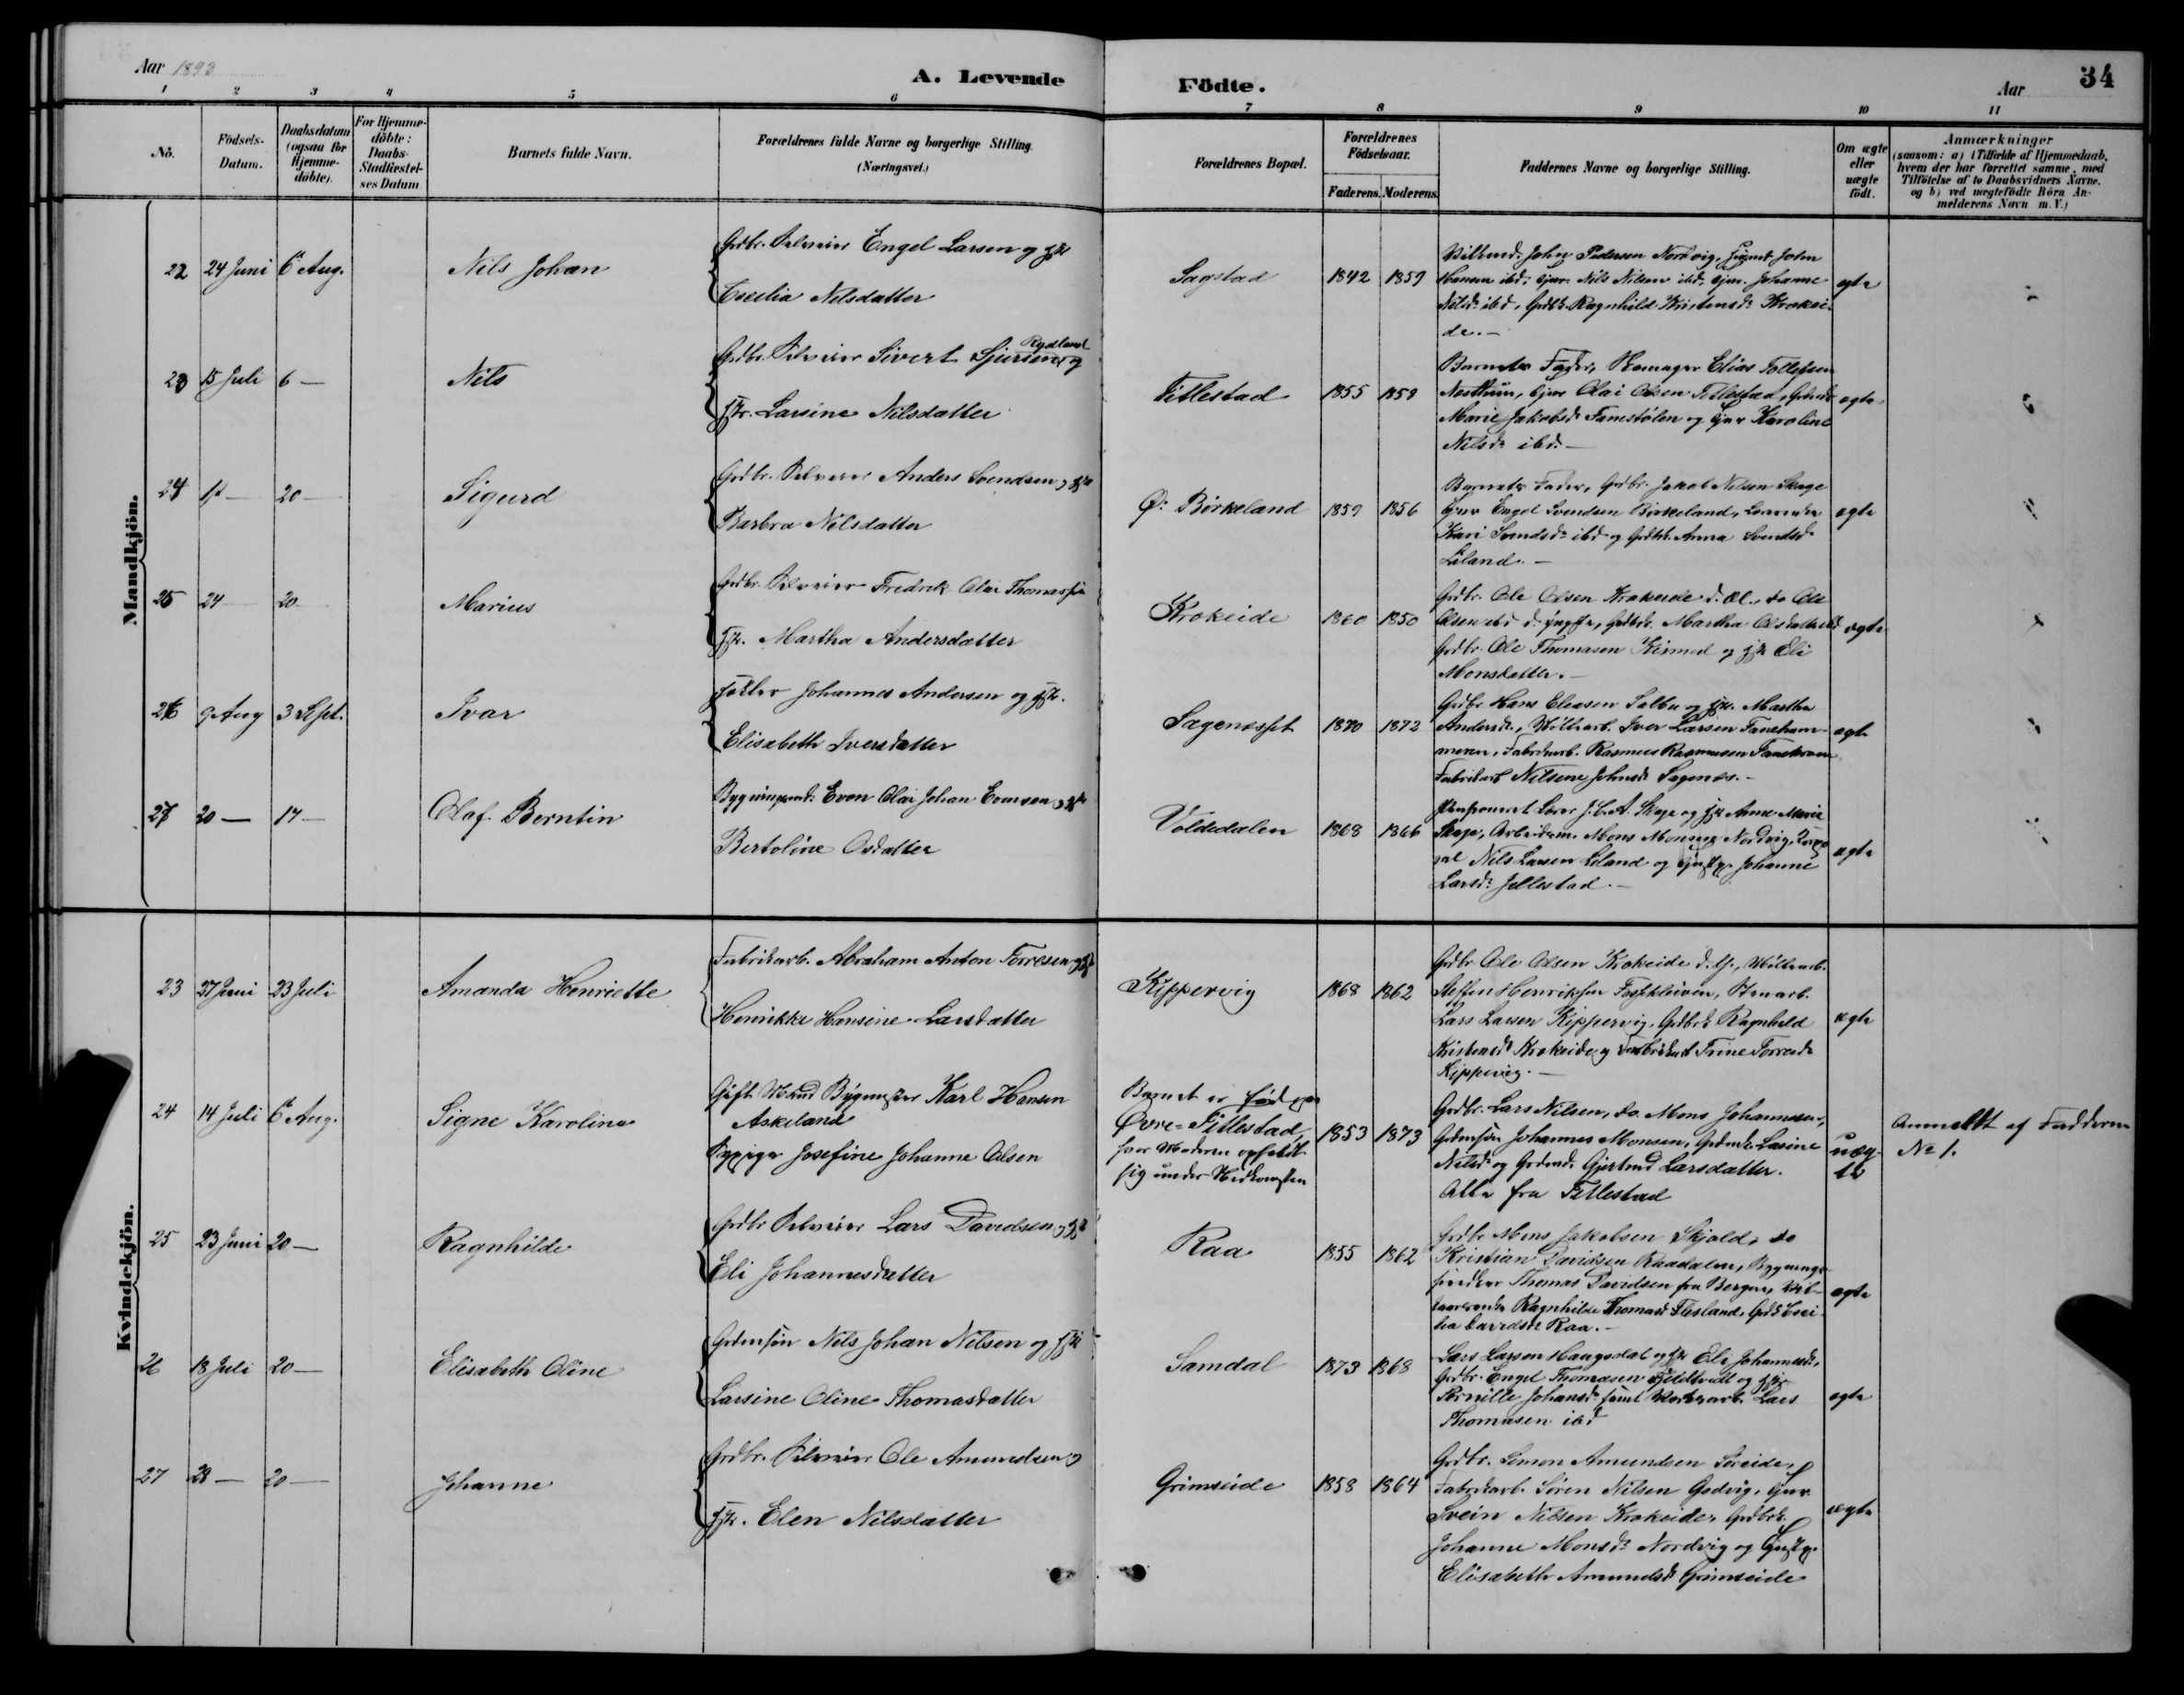 Aar 1893
A. Levende
Födte.
Aar
34
1 2 3 4 5 6 7 8 9 10 11
No.
Födsels-Datum.
Daabsdatum (ogsaa for Hjemme-döbte).
For Hjemme-döbte: Daabs-Stadfæstel-ses Datum
Barnets fulde Navn.
Forældrenes fulde Navne og borgerlige Stilling.
(Næringsvei.)
Forældrenes Bopæl.
Forældrenes Födselsaar.
Faderens. Moderens.
Faddernes Navne og borgerlige Stilling.
Om ægte eller uægte födt.
Anmærkninger
(saasom: a) i Tilfælde af Hjemmedaab, hvem der har forrettet samme, med Tilföielse af to Daabsvidners Navne, og b) ved uægtefödte Börn An-melderens Navn m. V.)
Mandkjön.
22 24 Juni 6 Aug. Nils Johan
Grdbr. Selveier Engel Larsen og Hstr
Cecilia Nilsdatter
Sagstad 1842 1859
John Pedersen Nordvig, John
Hansen ibd, Nils Nilsen ibd, Johanne
Nilsd. ibd, Ragnhild Kristensd. Krokei-
de.-
ægte
23 15 Juli 6 — Nils
Grdbr. Selveier Sivert Sjursen Rydland og
Hstr. Larsine Nilsdatter
Titlestad 1855 1859
Barnets Fader, Skomager Elias Tollefsen
Nesttun, Olai Olsen Titlestad,
Marie Jakobsd. Fanestølen og Karoline
Nilsd. ibd.-
ægte
24 20 — Sigurd
Grdbr. Selveier Anders Svendsen og Hstr
Barbra Nilsdatter
Ø. Birkeland 1859 1856
Barnets Fader, Grdbr. Jakob Nilsen Skage
Engel Svendsen Birkeland,
Kari Svendsd. ibd og Anna Svendsd.
Liland.-
ægte
25 24 20 Marius
Grdbr. Selveier Fredrik Olai Thomassen
Hstr. Martha Andersdatter
Krokeide 1860 1850
Grdbr. Ole Olsen Krokeide d. æl., do Ole
Olsen ibd d. yngste, Martha Olsdatter ibd
Grdbr. Ole Thomasen og Hstr Eli
Monsdatter.-
ægte
26 9 Aug 3 Sept. Ivar
Johannes Andersen og Hstr.
Elisabeth Iversdatter
Sagenesset 1870 1872
Grdbr Hans Eliasen Salbu og Hstr. Martha
Andersd., Iver Larsen Faneham-
meren, Fabrikarb. Rasmus Rasmussen
Fabrikarb Nilsine Johnsd. Sagenes.-
ægte
27 20 — 17 — Olaf Berntin
Even Olai Johan Evensen og Hstr
Bertoline Osdatter
Voldedalen 1868 1866
Lærer J. C. A. Skage og Hstr Anne Marie
Skage, Mons Monsen Nordvig,
Nils Larsen Liland og Johanne
Larsd. Jellestad.-
ægte
Kvindekjön.
23 27 Juni 23 Juli Amanda Henriette
Fabrikarb. Abraham Anton Torresen og Hstr
Henrikke Hansine Larsdatter
Kippervig 1868 1862
Grdbr Ole Olsen Krokeide d. y.,
Steffen Henriksen Fosskleiven, Stenarb.
Lars Larsen Kippervig, Ragnhild
Kristensd. Krokeide og Trine Torresd.
Kippervig.-
ægte
24 14 Juli 6 Aug. Signe Karoline
Gift Mand Bygmester Karl Hansen
Askeland
Pige Josefine Johanne Olsen
Barnet er født paa
Øvre-Titlestad,
hvor Moderen opholdt
sig under Nedkomsten
1853 1873
Grdbr. Lars Nilsen, do Mons Johannesen,
Johannes Monsen, Lasine
Nilsd. og Gjertrud Larsdatter.
Alle fra Titlestad
uæg-
te
Anmeldt af Fadderne
No 1.
25 23 Juni 20 — Ragnhilde
Grdbr Selveier Lars Davidsen og Hstr
Eli Johannesdatter
Raa 1855 1862
Grdbr Mons Jakobsen Skjold, do
Kristian Davidsen Raadalen, Bygnings-
Thomas Davidsen fra Bergen,
Ragnhilde Thomasd. Flesland, Ceci-
lia Davidsd. Raa.-
ægte
26 18 Juli 20 — Elisabeth Oline
Nils Johan Nilsen og Hstr
Larsine Oline Thomasdatter
Samdal 1873 1868
Lars Larsen Haugsdal og Hstr Eli Johannesd.,
Grdbr. Engel Thomasen og Hstr
Pernille Johansd. samt Lars
Thomasen ibd
ægte
27 28 — 20 — Johanne
Grdbr. Selveier Ole Amundsen og
Hstr. Elen Nilsdatter
Grimseide 1858 1864
Grdbr. Simon Amundsen Søreide,
Fabrikarb. Søren Nilsen Godvig,
Svein Nilsen Krokeide,
Johanne Monsd. Nordvig og
Elisabeth Amundsd. Grimseide
ægte